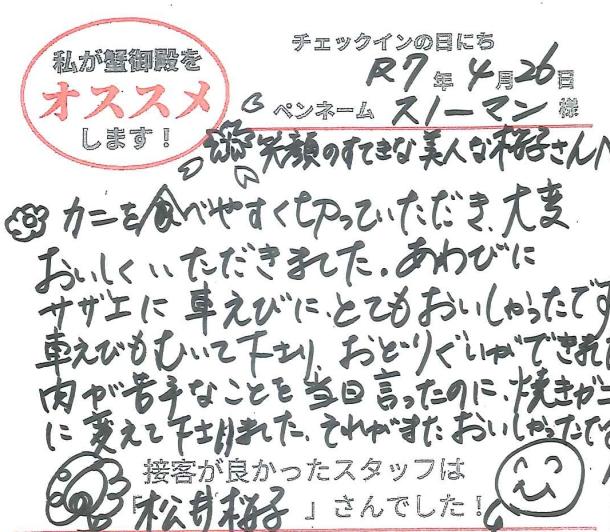 私が蟹御殿を
オススメ
します！
チェックインの日にち
R7年4月26日
ペンネーム スノーマン 様
笑顔のすてきな美人な桜子さんへ
カニを食べやすく切っていただき、大変
おいしくいただきました。あわびに
サザエに車えびに、とてもおいしかったです
車えびもむいて下さり、おどりぐいができまし
肉が苦手なことを当日言ったのに、焼きガニ
に変えて下さいました。それがまたおいしかったで
接客が良かったスタッフは
「松井桜子」さんでした！